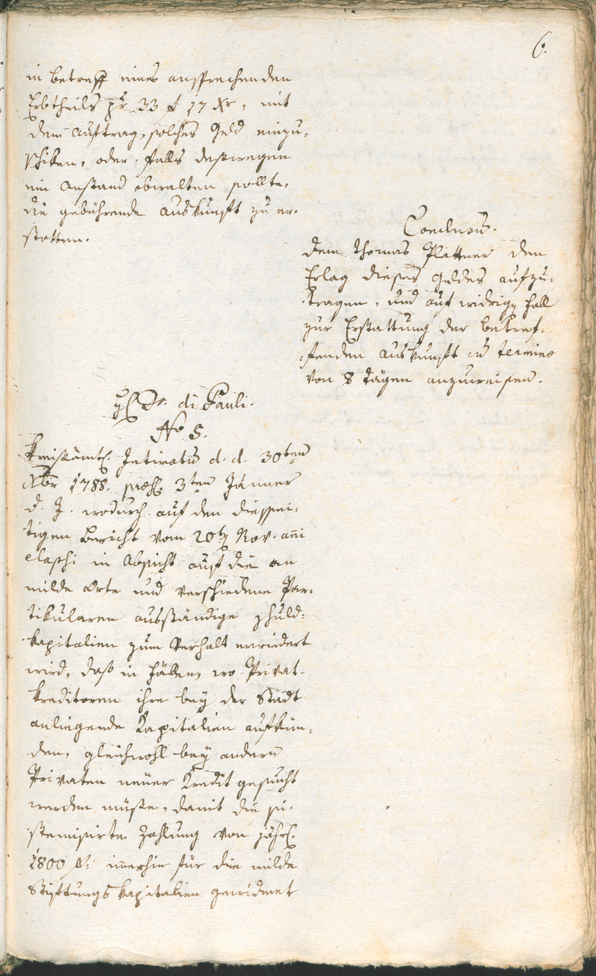 6.
in betreff eines ansprechenden
Erbtheils pr 33 f 17 Xr, mit
dem Auftrag, solches Geld einzu-
schiken, oder, falls deßwegen
ein Anstand obwalten sollte,
die gebührende Auskunft zu er-
statten.
Conclusum.
Dem Thomas Plattner den
Erlag dieses Geldes aufzu-
tragen, und auf widrigen Fall
zur Erstattung der betref-
fenden Auskunft in termino
von 8 Tägen anzuweisen.
di Pauli.
No 5.
Kreisämtl. Intimatum d. d. 30ten
Xbr 1788. præs. 3ten Jänner
d. J. wodurch auf den diessei-
tigen Bericht vom 20ten Nov. anni
elapsi in Absicht auf die an
milde Orte und verschiedene Par-
tikularen ausständige Schuld-
kapitalien zum Verhalt erwiedert
wird, daß in Fällen, wo Privat-
kreditoren ihre bey der Stadt
anliegende Kapitalien aufkün-
den, gleichwohl bey andern
Privaten neuer Kredit gesucht
werden müße, damit die si-
stemisirte Zahlung von jährl.
1800 f. immerhin für die milde
Stiftungskapitalien gewidmet